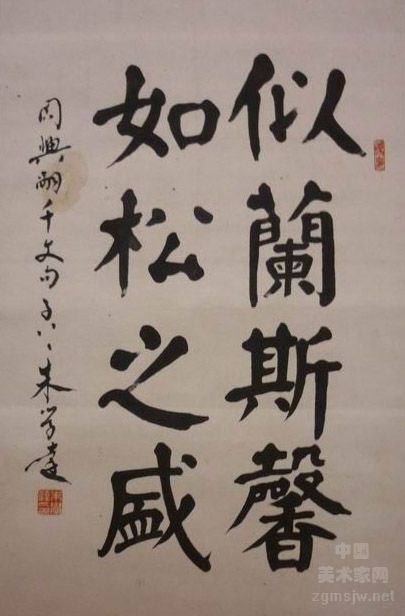 似蘭斯馨
如松之盛
周興嗣千文句 子八、朱学達
中国
美术家网
zgmsjw.net